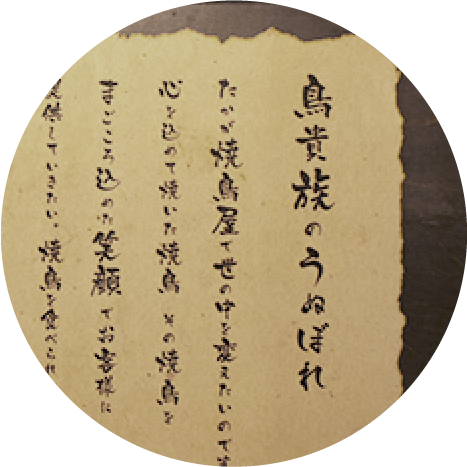 鳥貴族のうぬぼれ
たかが焼鳥屋で世の中を変えたいのです
心を込めて焼いた焼鳥 その焼鳥を
まごころ込めた笑顔でお客様に
提供していきたい。焼鳥を食べられ